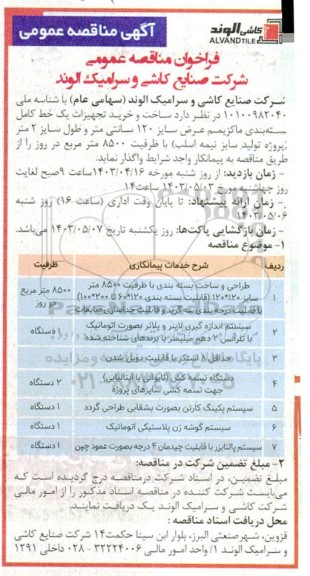 کاشی الوند
ALVAND TILE
آگهی مناقصه عمومی
فراخوان مناقصه عمومی
شرکت صنایع کاشی و سرامیک الوند
شرکت صنایع کاشی و سرامیک الوند (سهامی عام) با شناسه ملی
۱۰۱۰۰۹۸۲۰۴۰ در نظر دارد ساخت و خرید تجهیزات یک خط کامل
بسته‌بندی ماکزیمم عرض سایز ۱۲۰ سانتی متر و طول سایز ۲ متر
(پروژه تولید سایز نیمه اسلب) با ظرفیت ۸۵۰۰ متر مربع در روز را از
طریق مناقصه به پیمانکار واجد شرایط واگذار نماید.
- زمان بازدید: از روز شنبه مورخه ۱۴۰۳/۰۴/۱۶ ساعت ۹ صبح لغایت
روز چهارشنبه مورخ ۱۴۰۳/۰۵/۰۳ ساعت ۱۴
- زمان ارائه پیشنهاد: تا پایان وقت اداری (ساعت ۱۶) روز شنبه
۱۴۰۳/۰۵/۰۶
- زمان بازگشایی پاکت‌ها: روز یکشنبه تاریخ ۱۴۰۳/۰۵/۰۷ می‌باشد.
۱- موضوع مناقصه
ردیف شرح خدمات پیمانکاری ظرفیت
۱ طراحی و ساخت بسته بندی با ظرفیت ۸۵۰۰ متر
سایز ۱۲۰*۱۲۰ (قابلیت بسته بندی ۱۲۰*۶۰ تا ۲۰۰*۱۰۰)
با قابلیت درجه بندی سه گرید و قابلیت جداسازی ضایعات
۸۵۰۰ متر مربع
در روز
۲ سیستم اندازه گیری لاینر و پلانر بصورت اتوماتیک
با تلرانس ۲ دهم میلیمتر با برندهای شناخته شده
۱ دستگاه
۳ حداقل ۸ استکر با قابلیت دوبل شدن
۴ دستگاه تسمه کش (تایوانی یا ایتالیایی)
جهت تسمه کشی سایزهای پروژه
۲ دستگاه
۵ سیستم پکینگ کارتن بصورت بشقابی طراحی گردد ۱ دستگاه
۶ سیستم گوشه زن پلاستیکی اتوماتیک ۱ دستگاه
۷ سیستم پالتایزر با قابلیت چیدمان ۴ درجه بصورت عمود چین ۱ دستگاه
۲- مبلغ تضمین شرکت در مناقصه:
مبلغ تضمین، در اسناد شرکت درمناقصه درج گردیده است که
می‌بایست شرکت کننده در مناقصه اسناد مذکور را از امور مالی
شرکت کاشی و سرامیک الوند یک دریافت نمایند.
محل دریافت اسناد مناقصه:
قزوین، شهرصنعتی البرز، بلوار ابن سینا حکمت ۱۴ شرکت صنایع کاشی
و سرامیک الوند ۱/ واحد امور مالی ۳۲۲۲۴۰۰۶ - ۰۲۸ داخلی ۱۲۹۱